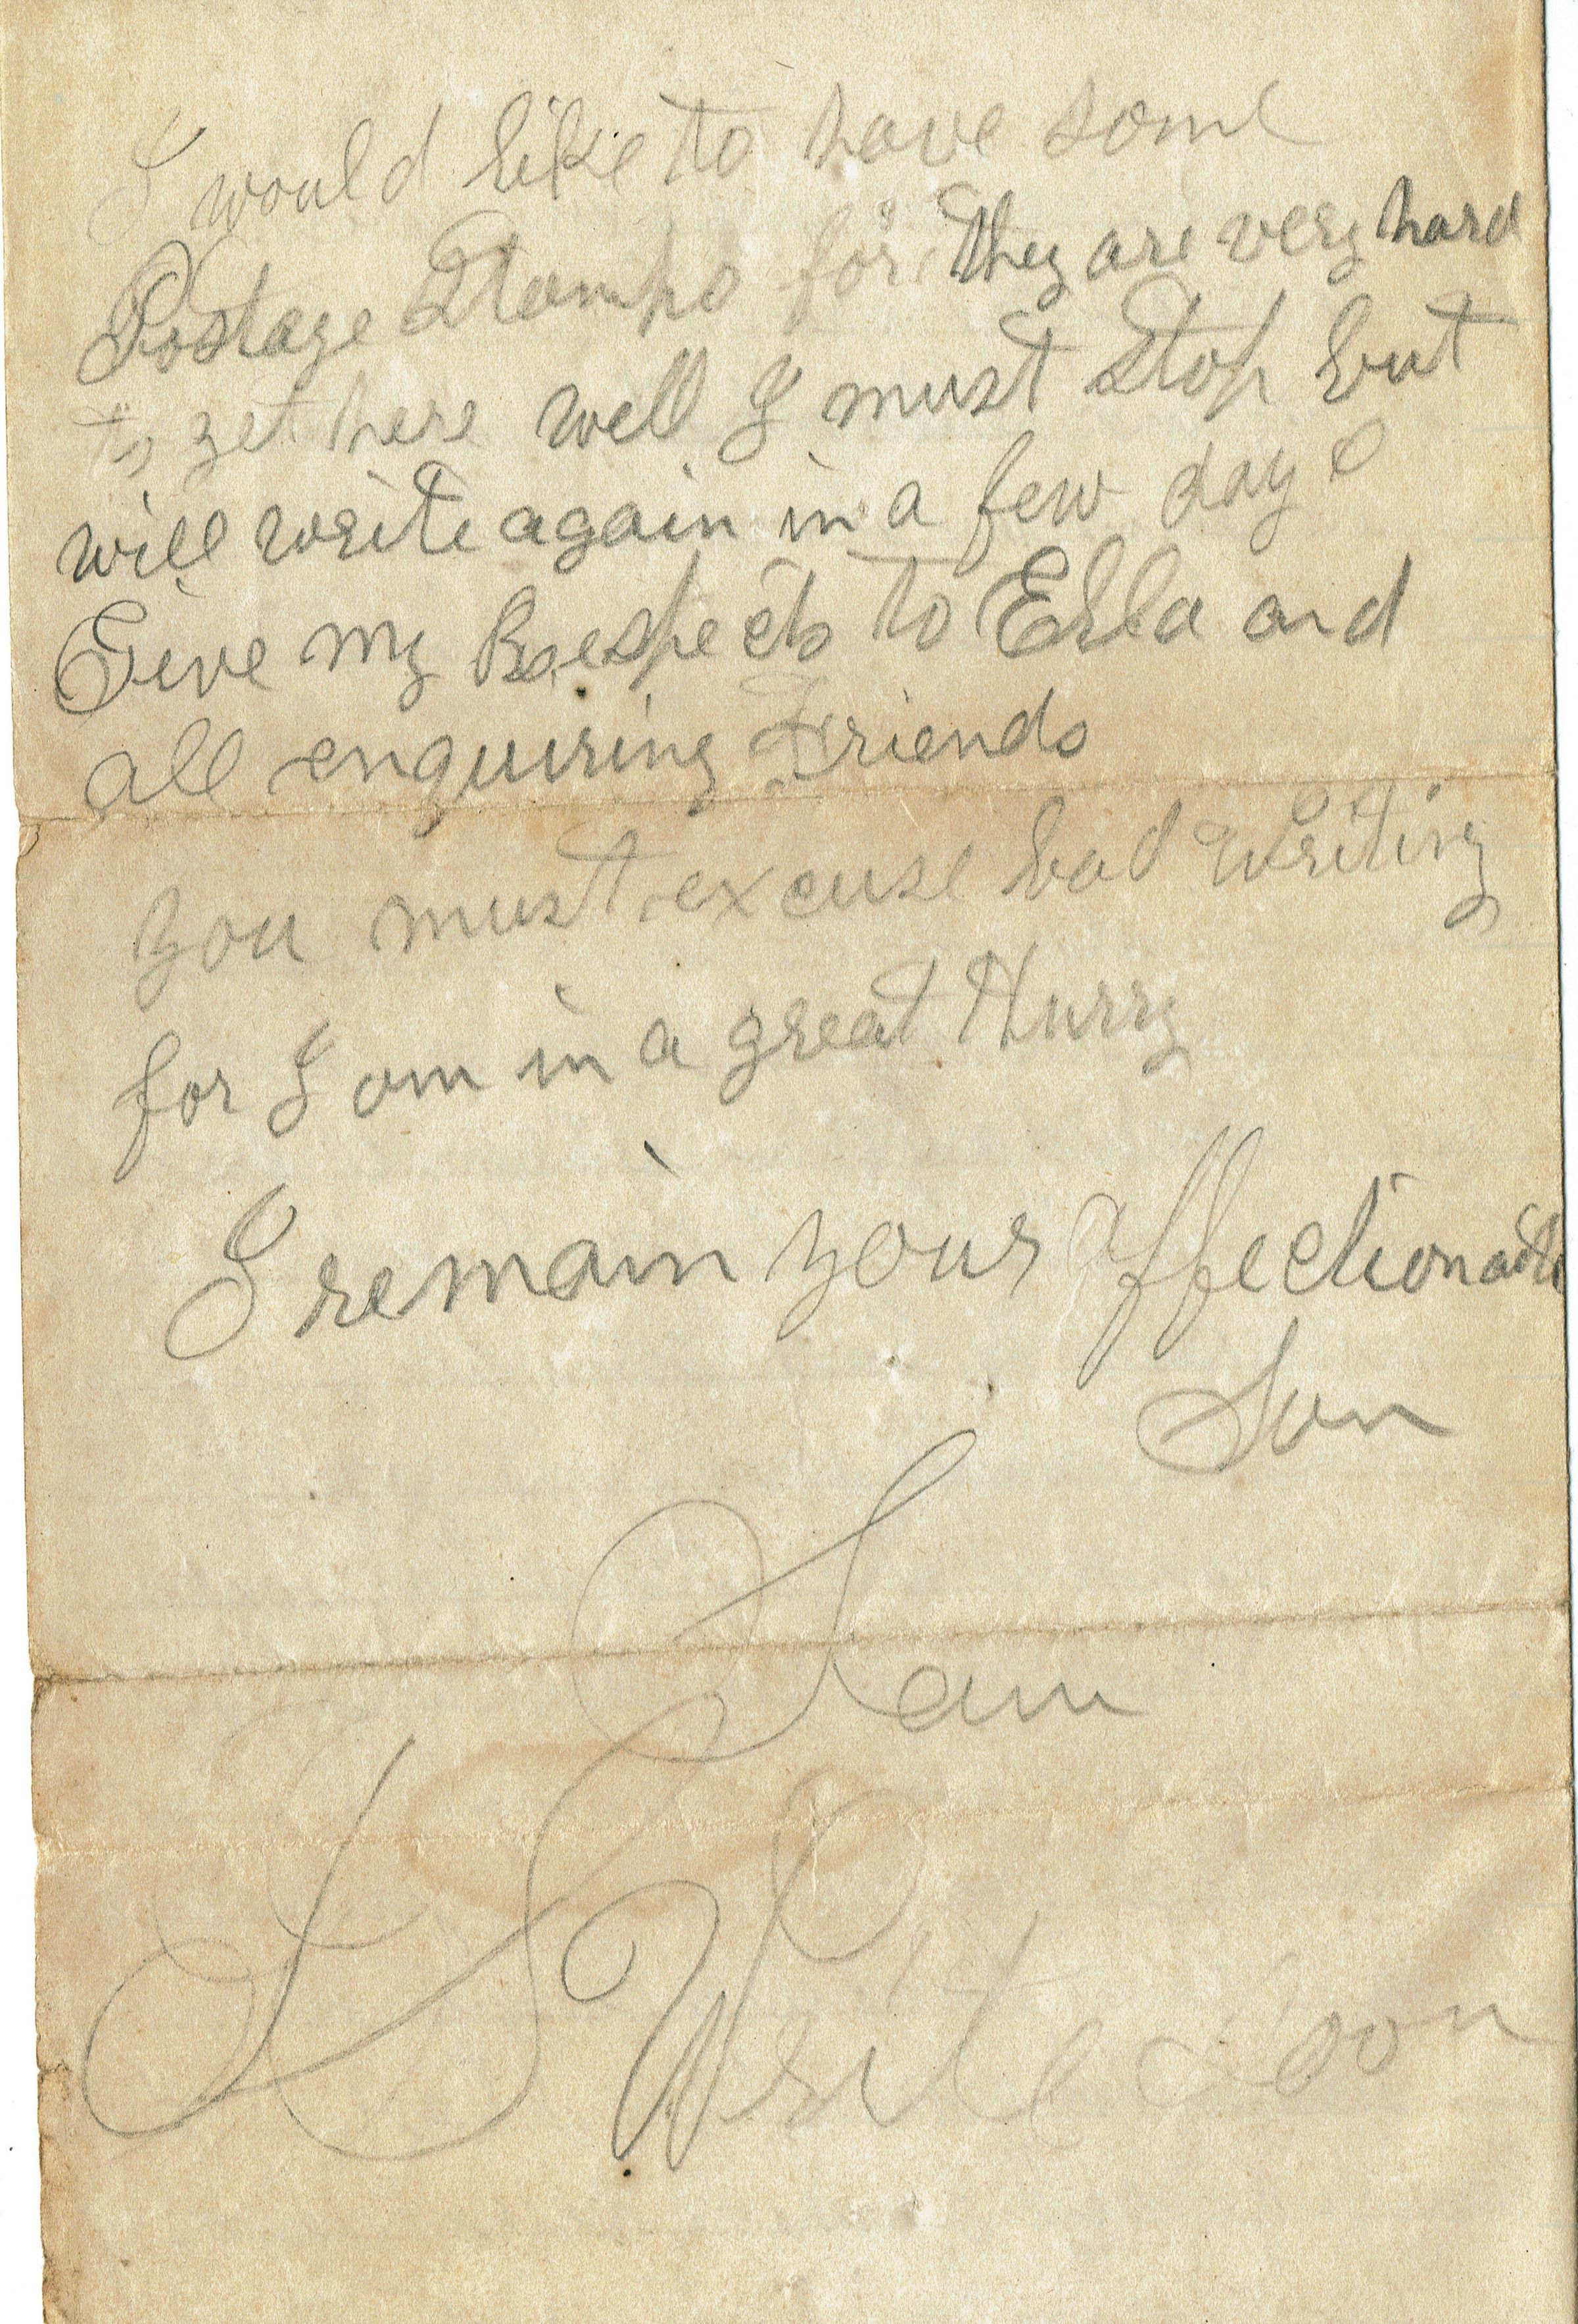 I would like to have some
Postage Stamps for they are very hard
to get here well I must stop but
will write again in a few days
Give my Respects to Ella and
all enquiring Friends
you must excuse bad writing
for I am in a great Hurry
I remain your affectionate
Son
Sam
Write soon